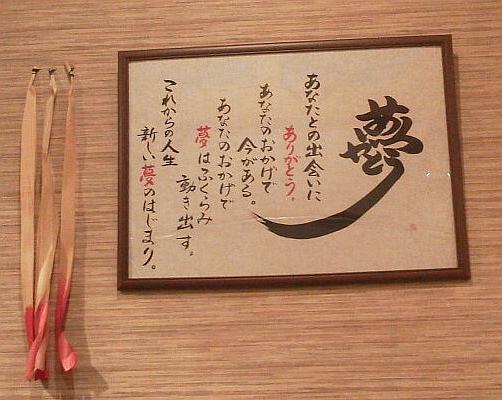 夢
あなたとの出会いに
ありがとう。
あなたのおかげで
今がある。
あなたのおかげで
夢はふくらみ
動き出す。
これからの人生
新しい夢のはじまり。